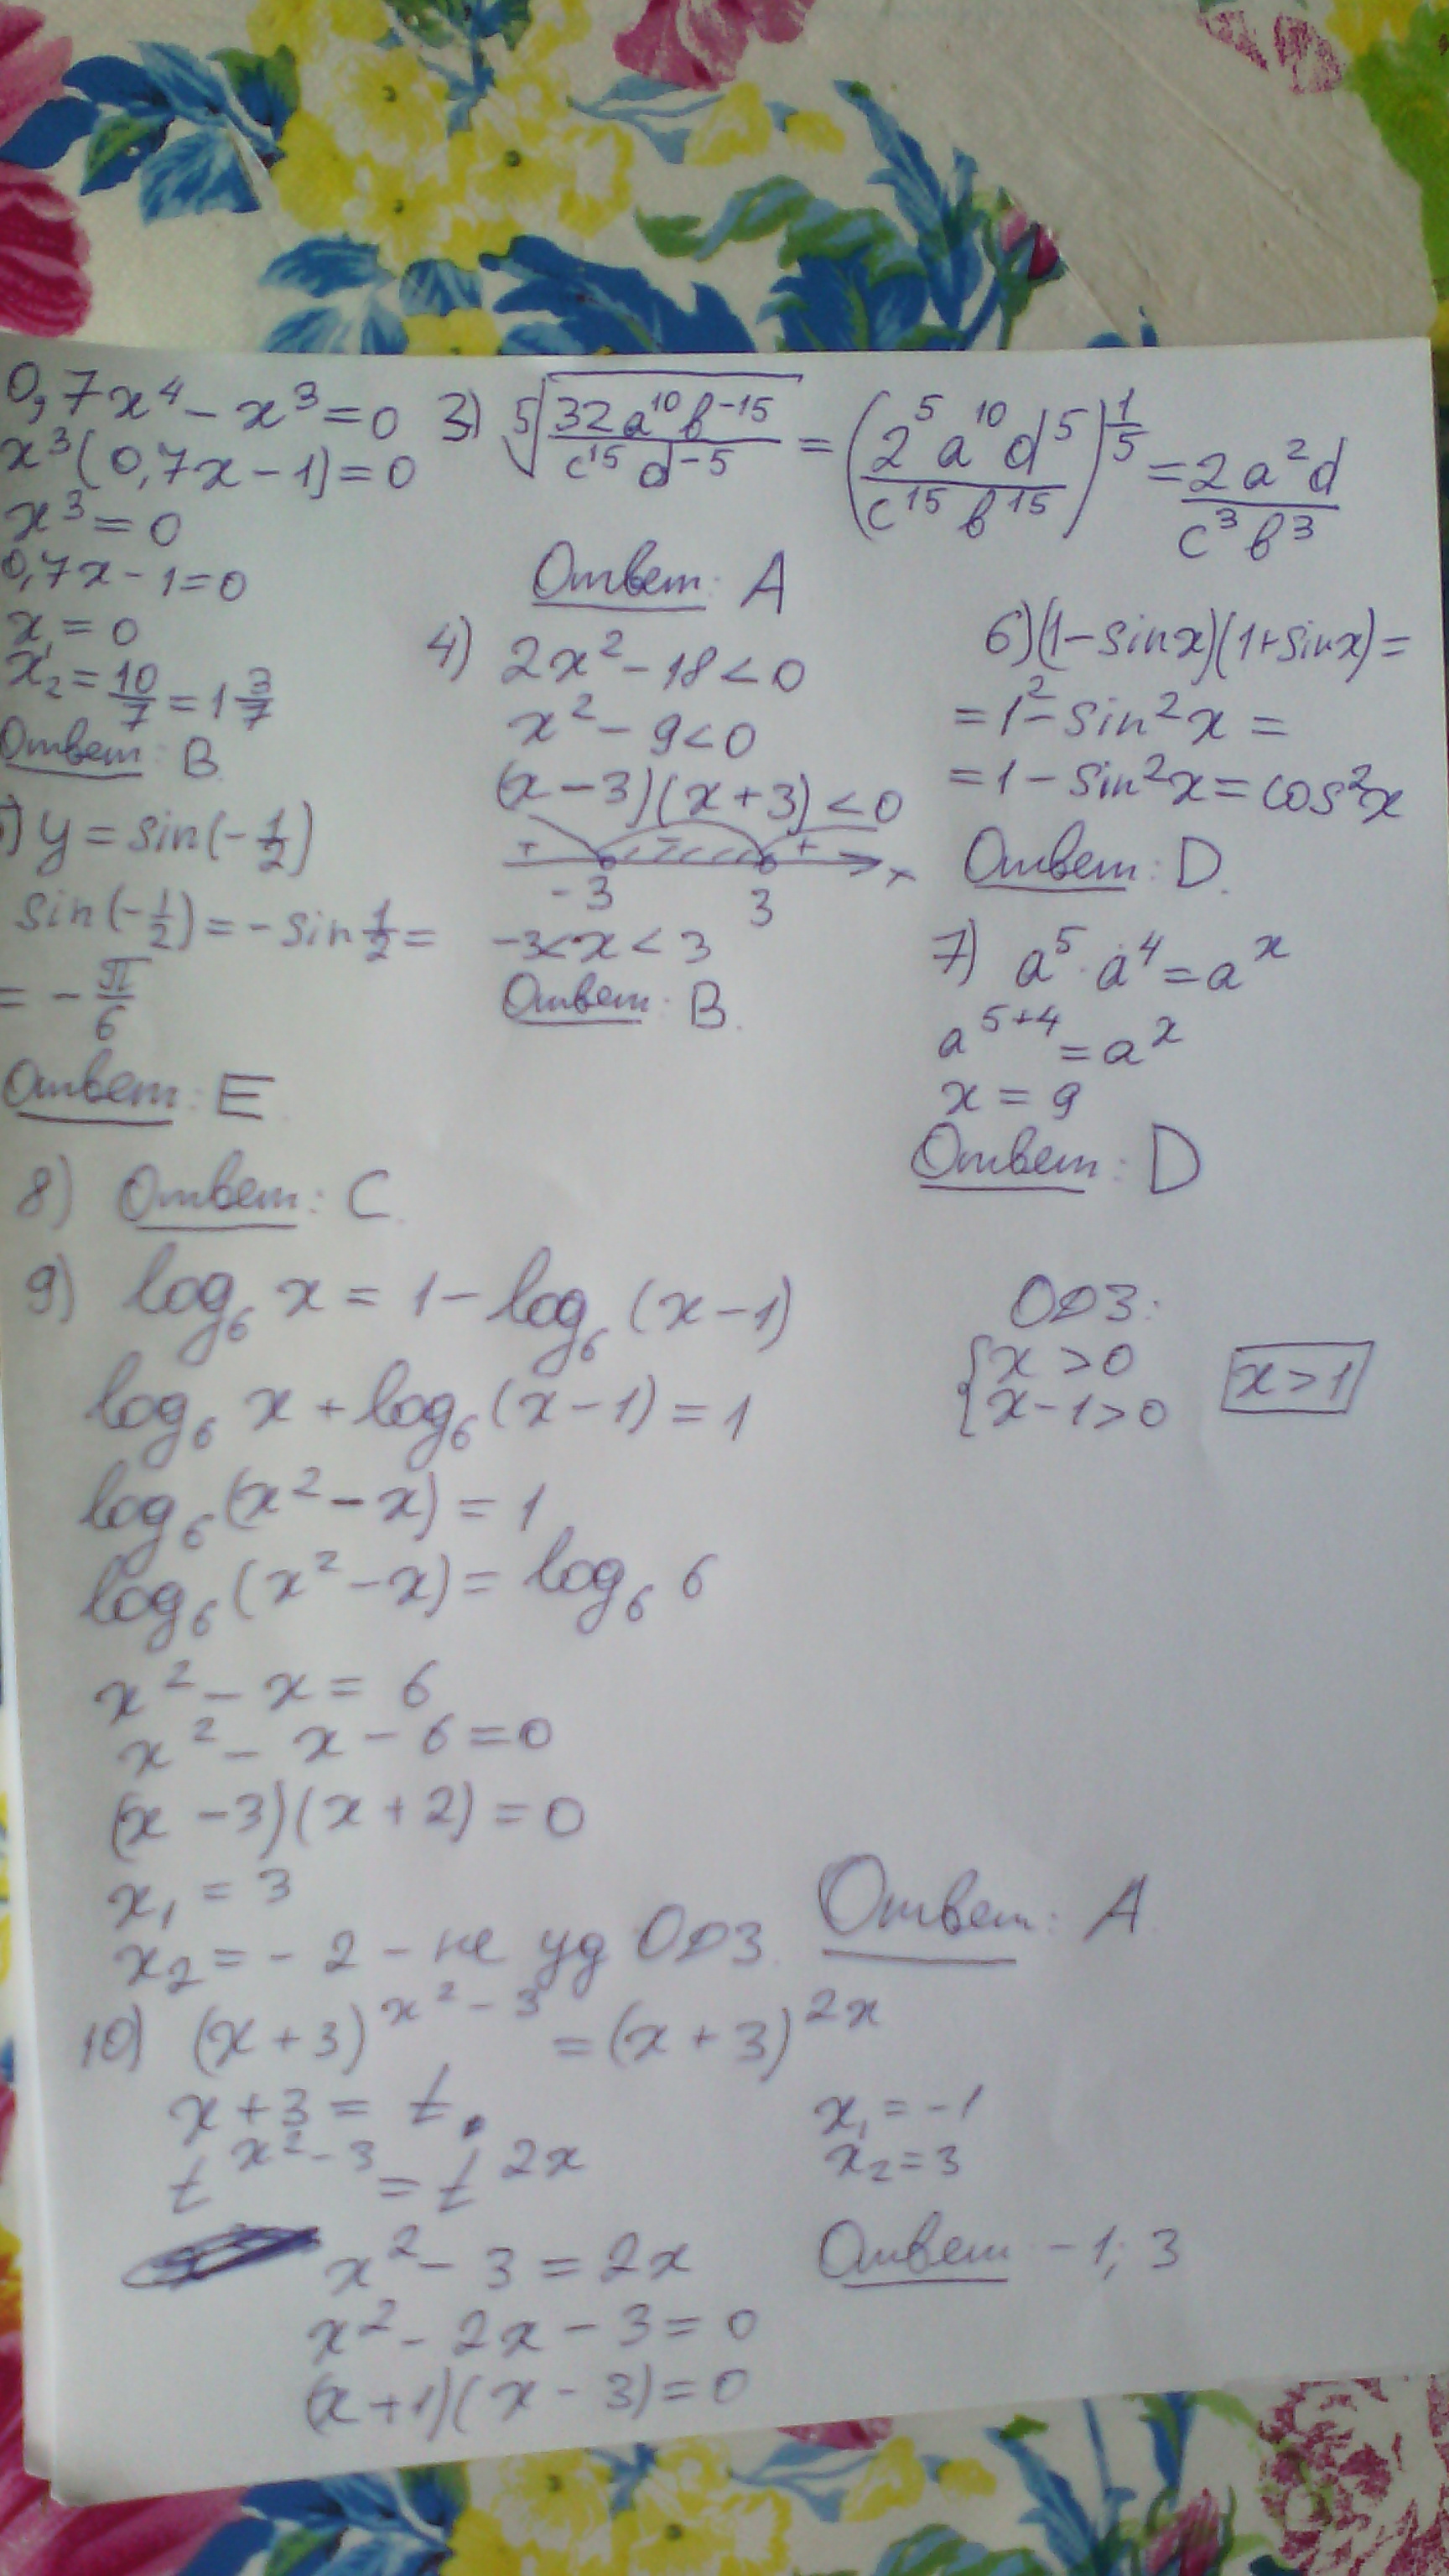 0,7x⁴ - x³ = 0
x³(0,7x - 1) = 0
x³ = 0
0,7x - 1 = 0
x₁ = 0
x₂ = 10/7 = 1 3/7
Ответ: B.
3) ⁵√(32a¹⁰b⁻¹⁵ / c¹⁵d⁻⁵) = (2⁵a¹⁰d⁵ / c¹⁵b¹⁵)^(1/5) = 2a²d / c³b³
Ответ: A
4) 2x² - 18 < 0
x² - 9 < 0
(x - 3)(x + 3) < 0
+ - + x
-3 3
-3 < x < 3
Ответ: B.
) y = sin(-1/2)
sin(-1/2) = - sin 1/2 =
= - π/6
Ответ: E
6) (1 - sinx)(1 + sinx) =
= 1² - sin²x =
= 1 - sin²x = cos²x
Ответ: D.
7) a⁵ · a⁴ = aˣ
a⁵⁺⁴ = aˣ
x = 9
Ответ: D
8) Ответ: C.
9) log₆ x = 1 - log₆ (x - 1)
log₆ x + log₆ (x - 1) = 1
log₆ (x² - x) = 1
log₆ (x² - x) = log₆ 6
x² - x = 6
x² - x - 6 = 0
(x - 3)(x + 2) = 0
x₁ = 3
x₂ = - 2 - не уд ОДЗ.
ОДЗ:
{ x > 0
x - 1 > 0
x > 1
Ответ: A.
10) (x + 3)^(x² - 3) = (x + 3)^(2x)
x + 3 = t.
t^(x² - 3) = t^(2x)
x² - 3 = 2x
x² - 2x - 3 = 0
(x + 1)(x - 3) = 0
x₁ = -1
x₂ = 3
Ответ -1; 3